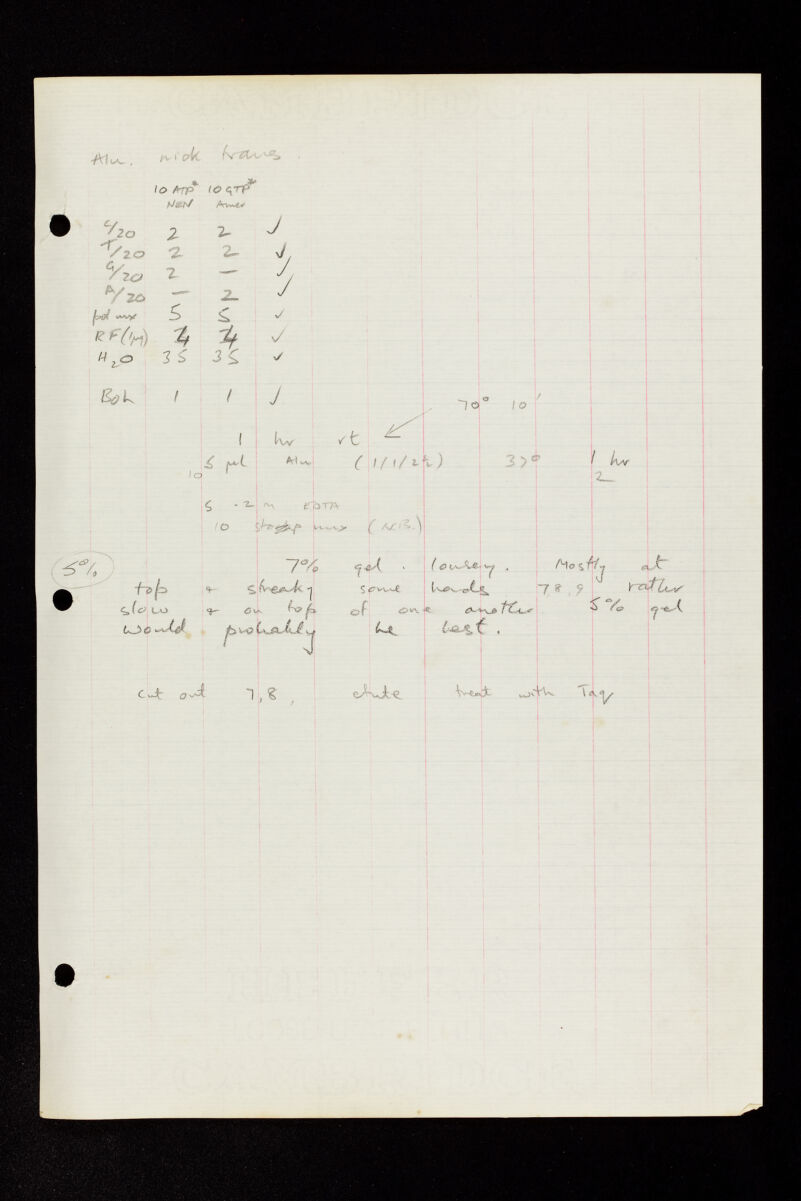 Alu. nick trans.
10 ATP* 10 GTP*
NEN Amer
C/20 2 2 ✓
T/20 2 2 ✓
G/20 2 — ✓
A/20 — 2 ✓
pol mix 5 5 ✓
RF (1μg) 4 4 ✓
H2O 35 35 ✓
Boh 1 1 ✓
70° 10'
1 hr rt
10 5 μl Alu (1/1/2½) 37° 1/2 hr
5 .2 M EDTA
10 stop mix (N.B.)
5% 7% gel. lousey. Mostly at
top + streaky some bands 7,8,9 rather
slow + on top of one another 5% gel
would probably be best.
cut out 7,8, elute treat with Taq